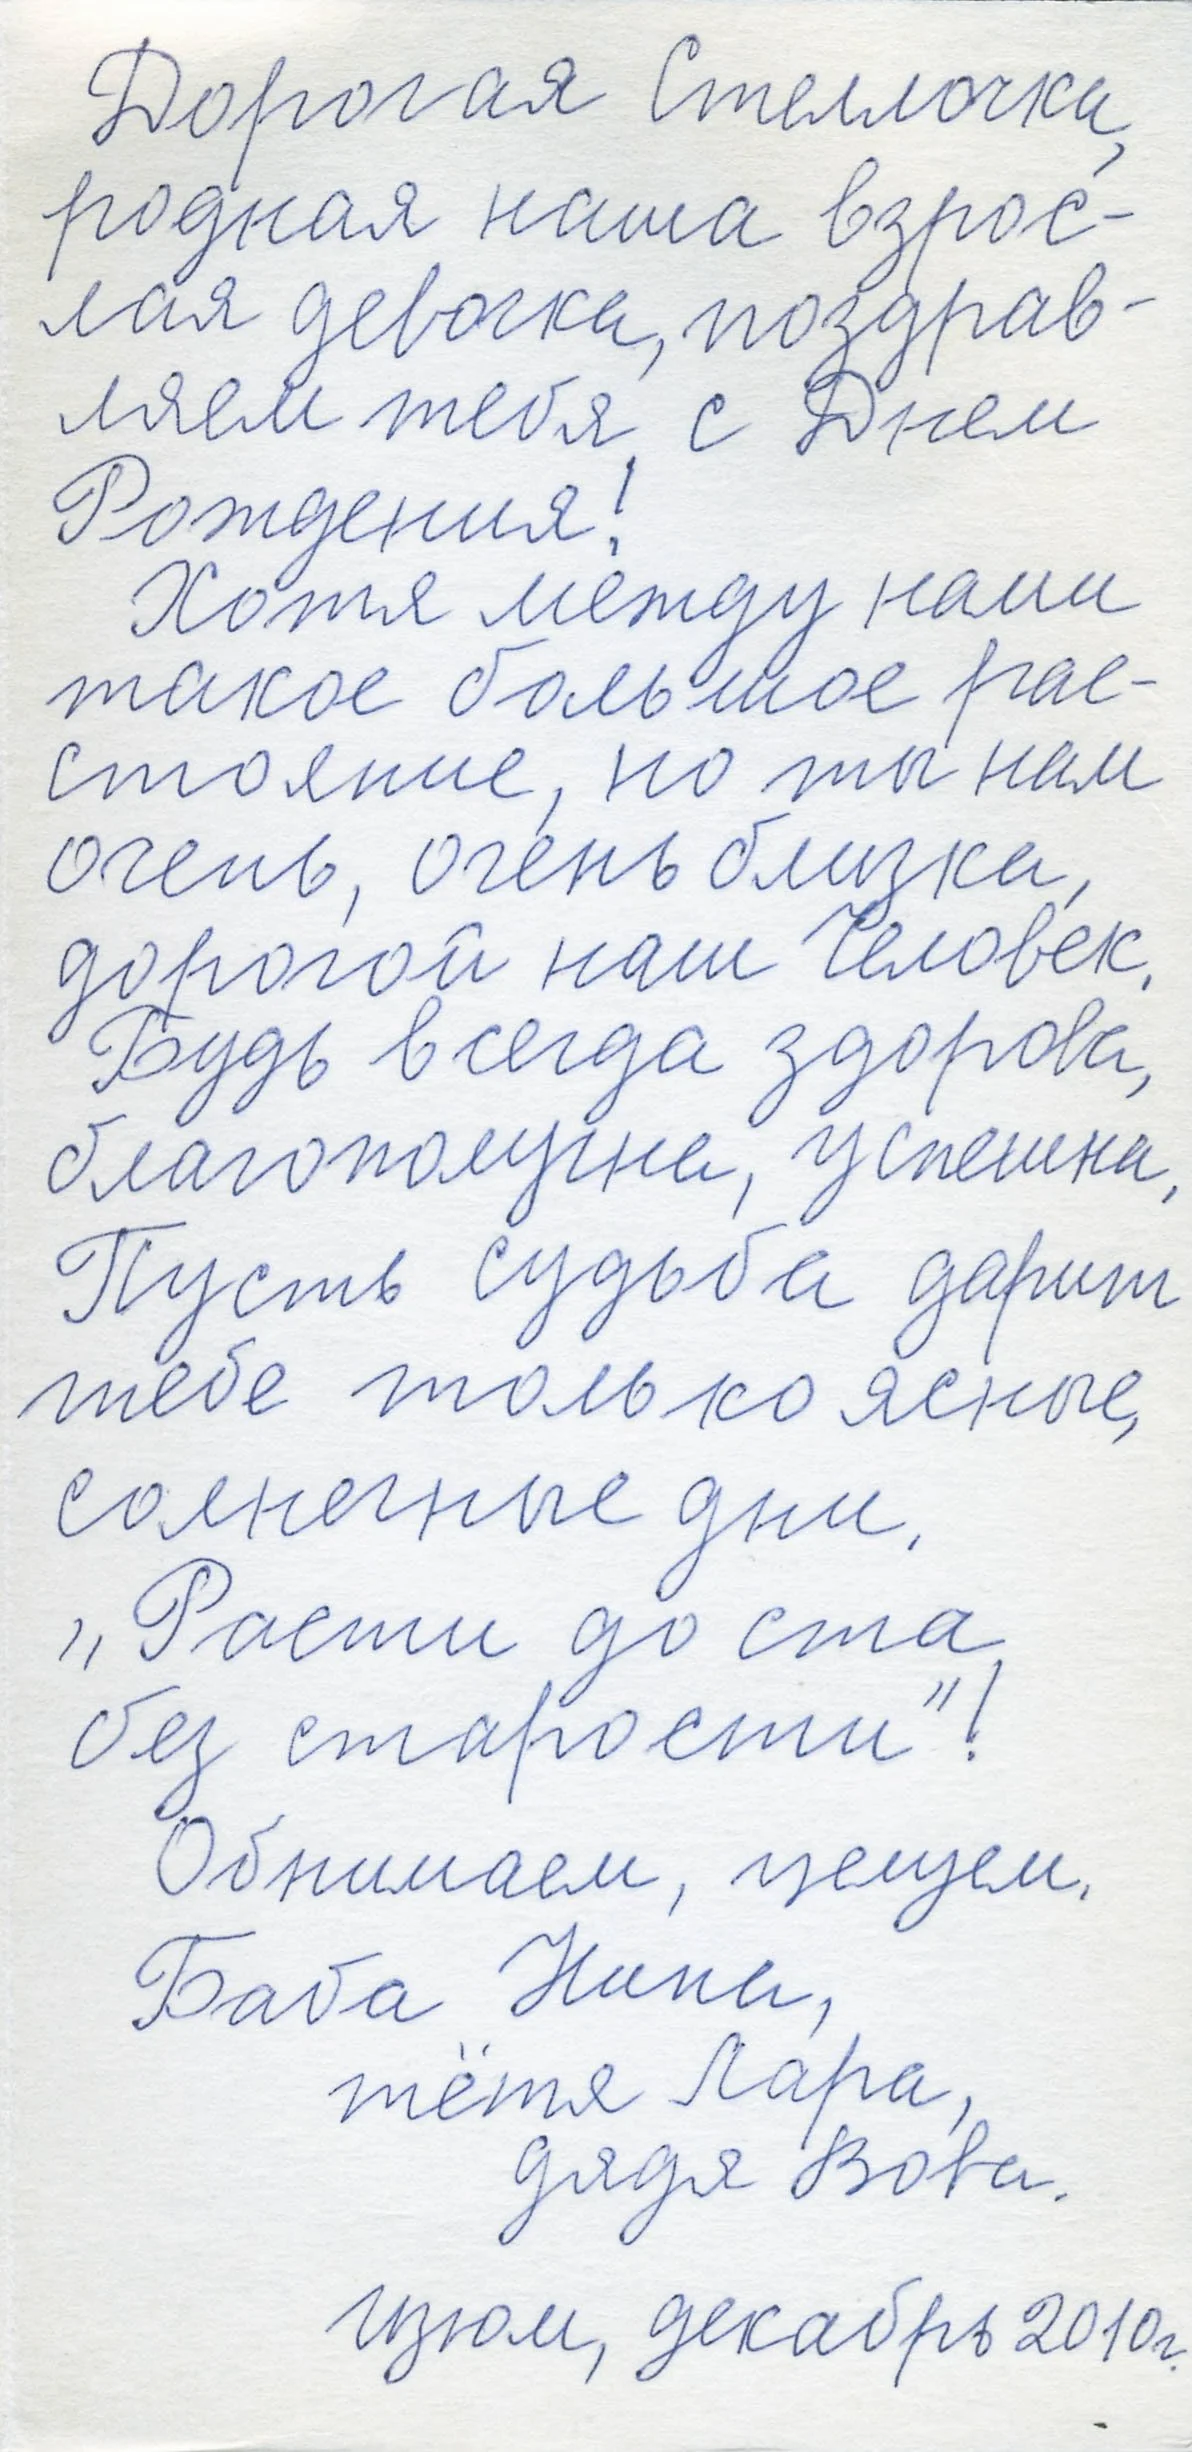 Дорогая Стеллочка,
родная наша взрос-
лая девочка, поздрав-
ляем тебя с Днем
Рождения!
Хотя между нами
такое большое рас-
стояние, но ты нам
очень, очень близка,
дорогой наш Человек.
Будь всегда здорова,
благополучна, успешна.
Пусть судьба дарит
тебе только ясные,
солнечные дни.
„Расти до ста
без старости"!
Обнимаем, целуем.
Баба Нина,
тётя Лара,
дядя Вова.
Изюм, декабрь 2010г.